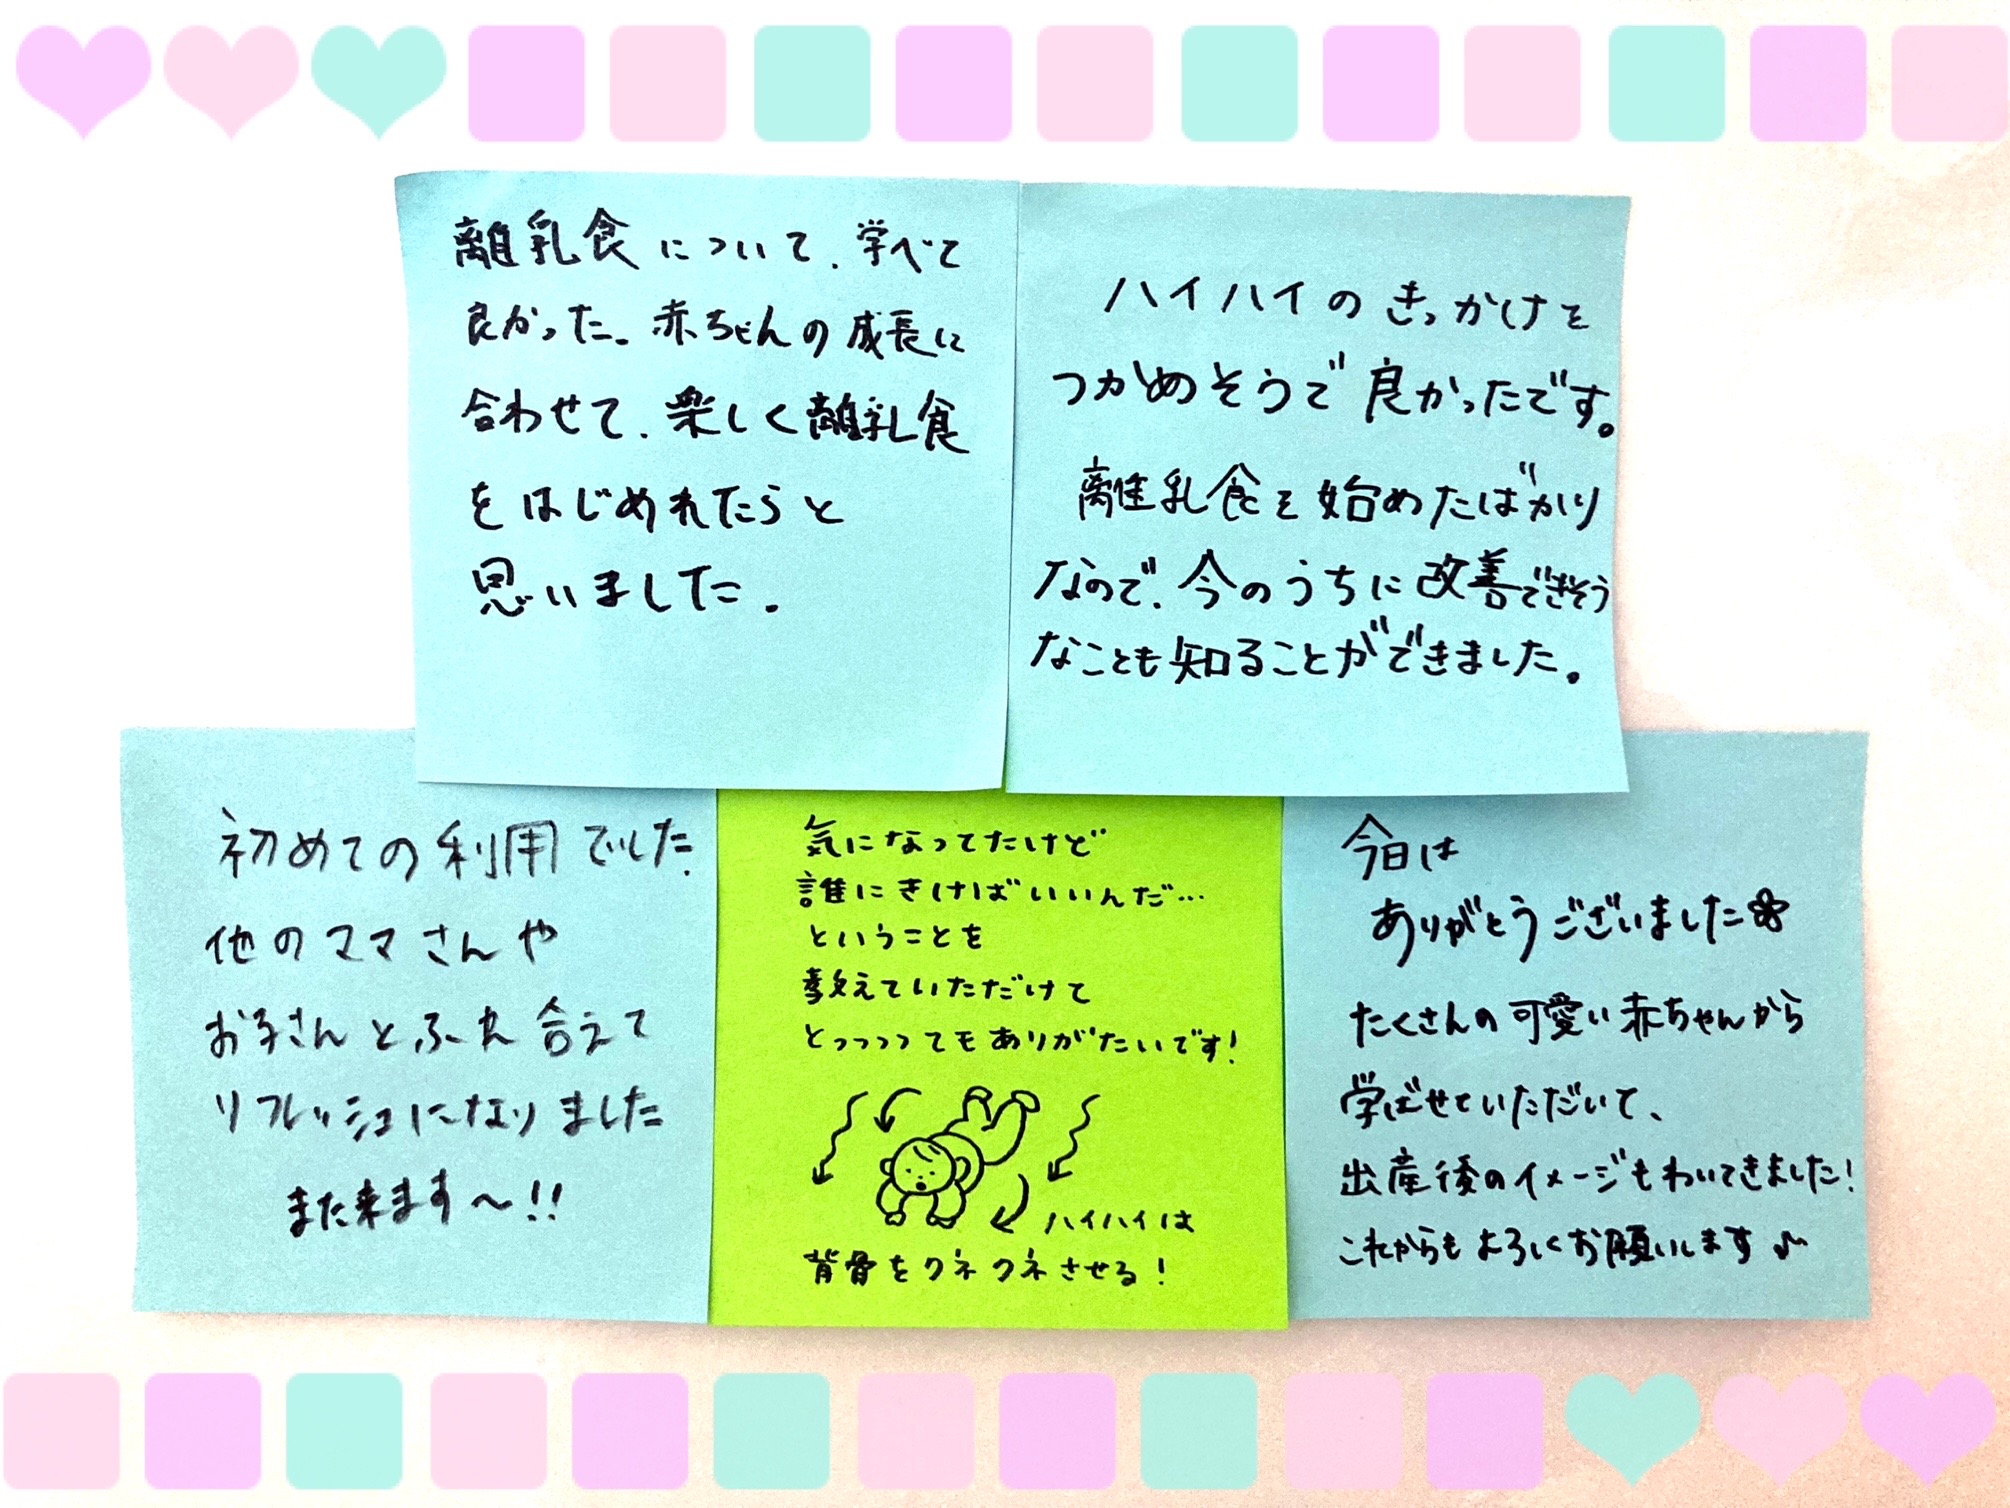 離乳食について、学べて
良かった。赤ちゃんの成長に
合わせて、楽しく離乳食
をはじめれたらと
思いました。
ハイハイのきっかけを
つかめそうで良かったです。
離乳食を始めたばかり
なので、今のうちに改善できそう
なことも知ることができました。
初めての利用でした.
他のママさんや
お子さんとふれ合えて
リフレッシュになりました
また来ます〜!!
気になってたけど
誰にきけばいいんだ…
ということを
教えていただけて
とっっっってもありがたいです!
ハイハイは
背骨をクネクネさせる!
今日は
ありがとうございました
たくさんの可愛い赤ちゃんから
学ばせていただいて、
出産後のイメージもわいてきました!
これからもよろしくお願いします♪